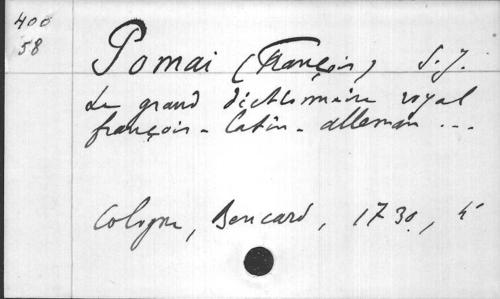 400
58
Pomai (François) S. J.
Le grand dictionnaire royal
françois - latin - alleman ...
Cologne, Bencard, 1730, 4°